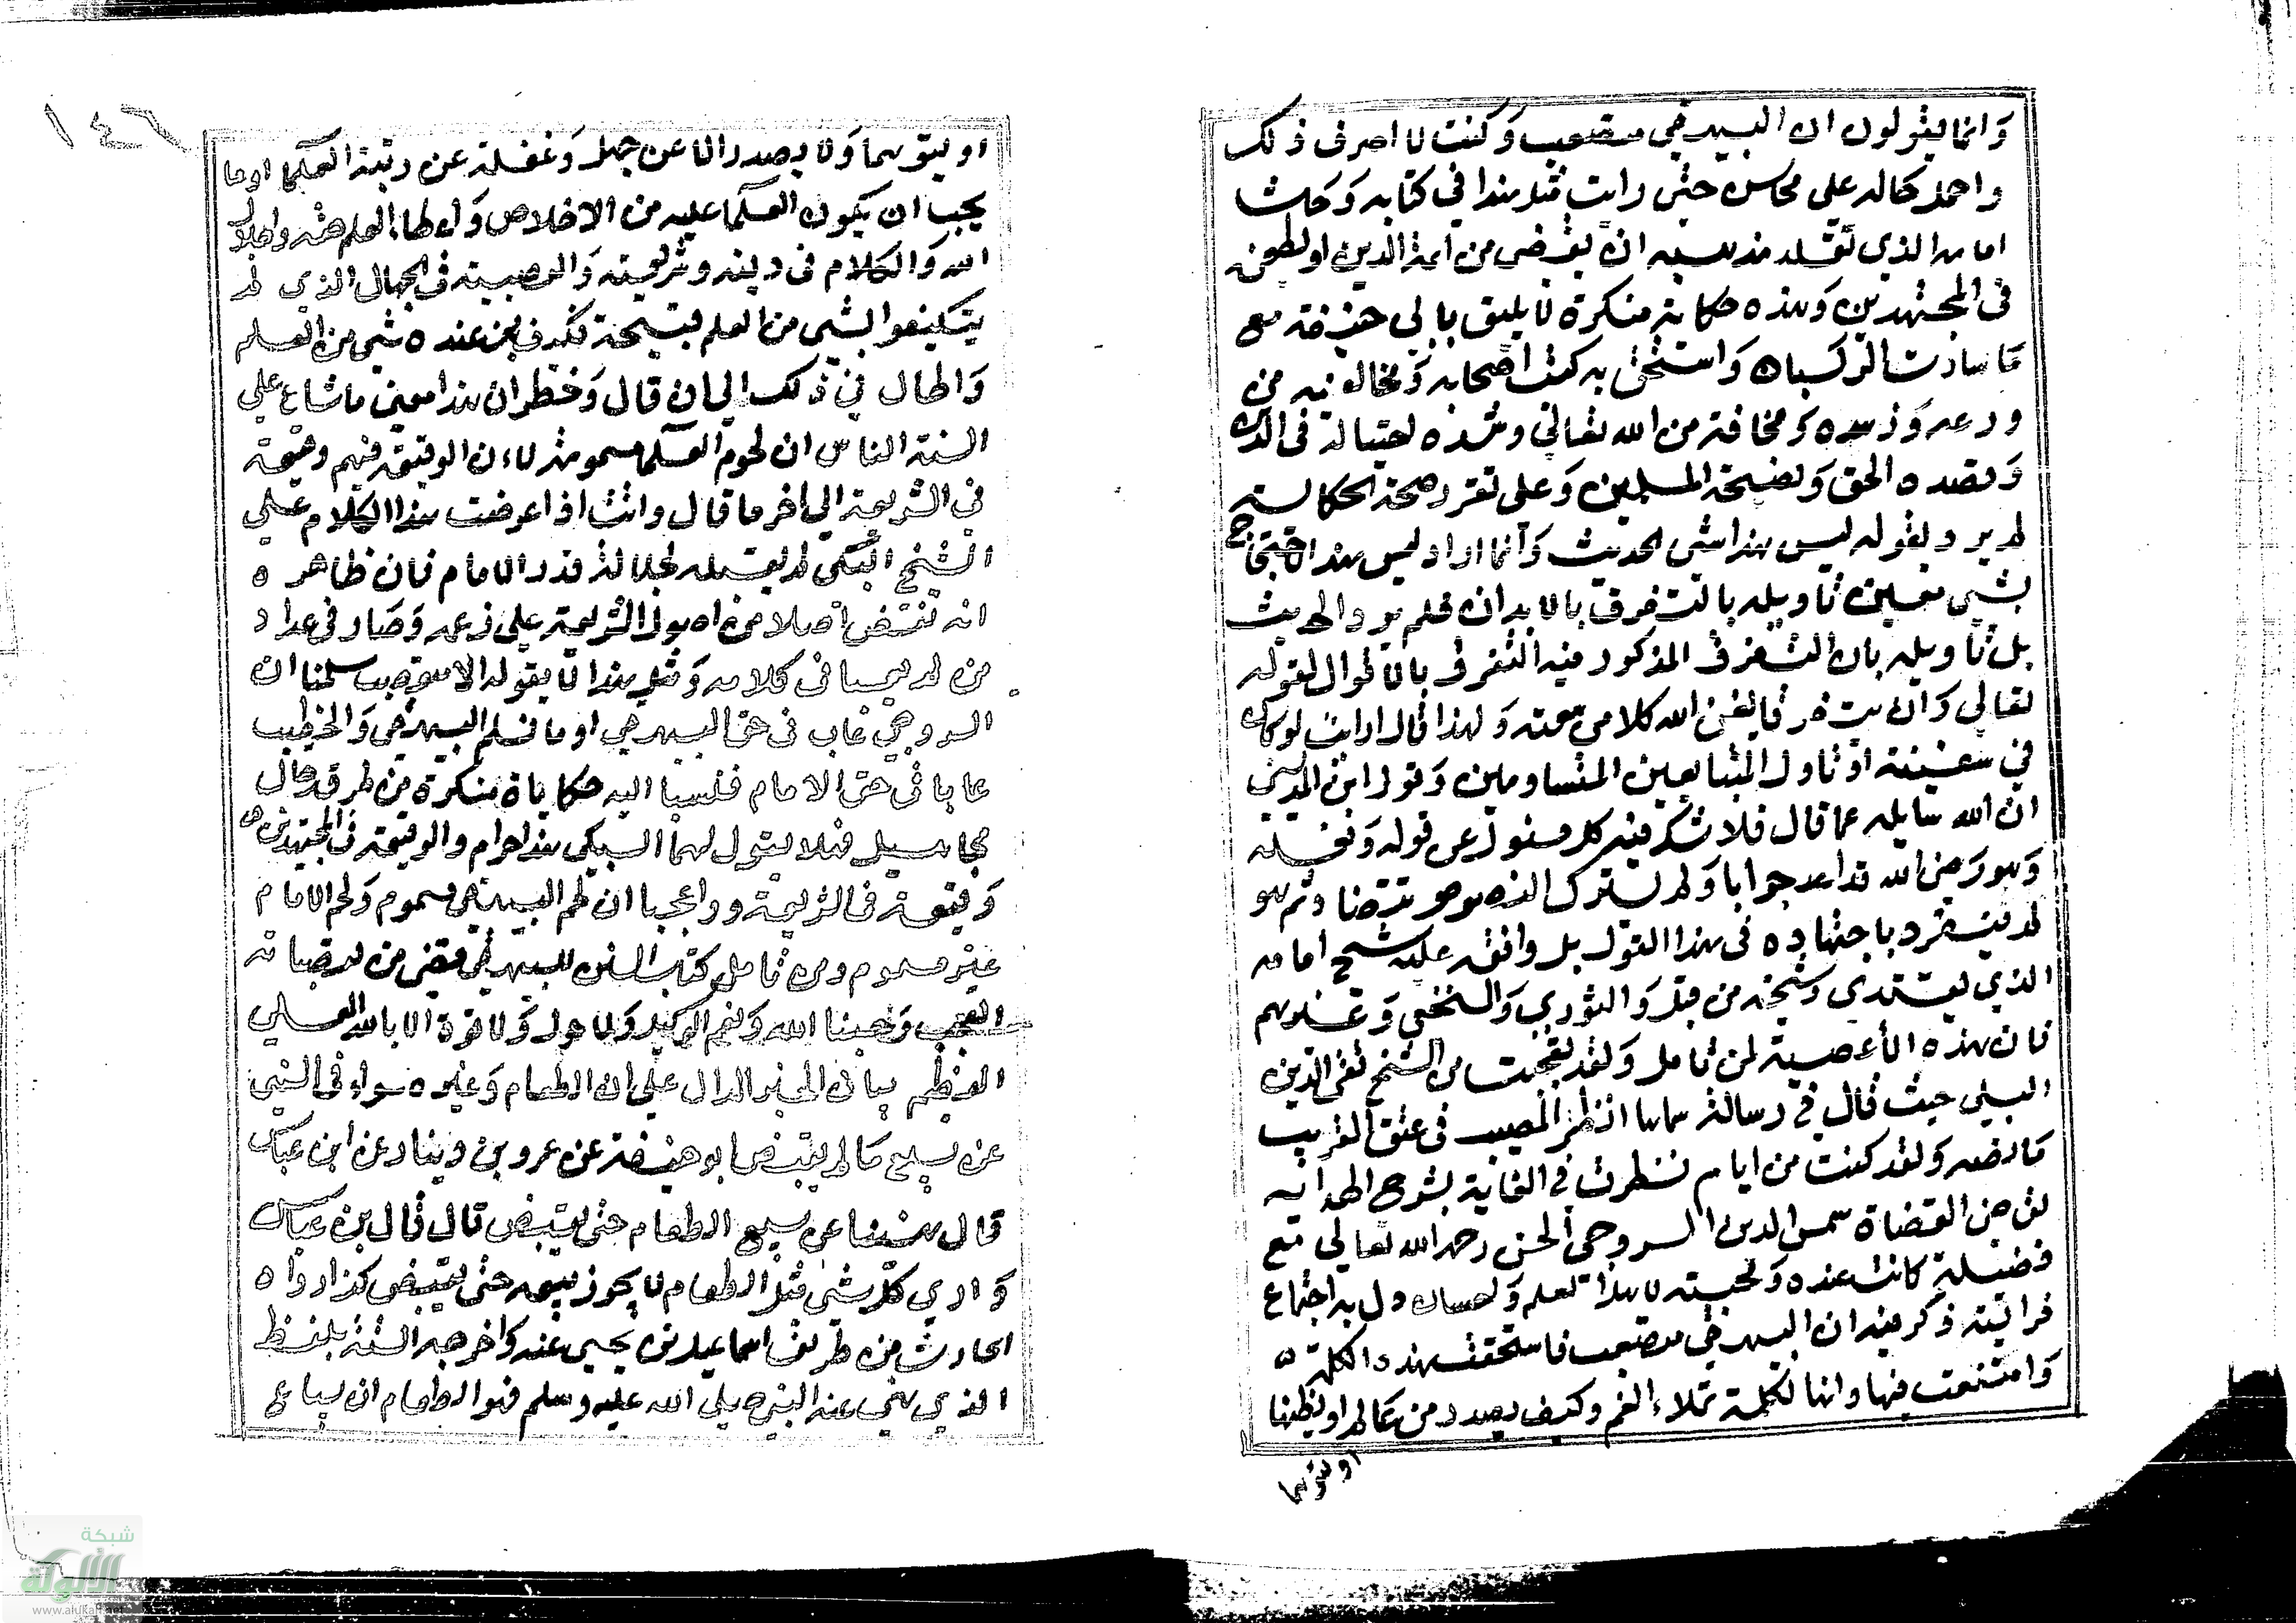 وانما يقولون ان البيهقي متعصب وكنت لا اصرفي ذلك
واحمل حاله على محاسن حتى رايت مثل هذا في كتابه وحاش
امامه الذي تقلد مذهبه ان يغض من ائمة الدين او يطعن
في المجتهدين وهذه حكاية منكرة لا يليق بابي حنيفة مع
ما سارت الركبان واستحق به كتب اصحابه ومخالفيه من
ورعه وزهده ومخافته من الله تعالى وشده احتياطه في الدين
وقصده الحق ونصيحة المسلمين وعلى تقرير صحة الحكاية
لم يرد بقوله ليس هذا بشي الحديث وانما اراد ليس هذا الاحتجاج
بشي يعين تاويله بالتفرق بالابدان فلم يرد الحديث
بل تاويله بان التفرق المذكور فيه التفرق بالاقوال لقوله
تعالى وان يتفرقا يغن الله كلا من سعته ولهذا قال ارايت لو كان
في سفينة او تاول المتبايعين المتساومين وقول ابن المديني
ان الله سايله عما قال فلا شك فيه كل مسئول عن قوله وفعله
وهو رضي الله قد اعد جوابا ولم يترك النصوص تنقضا ثم هو
لم ينفرد باجتهاده في هذا القول بل وافقه عليه شيخ امامه
الذي يقتدي وشيخه من قبل والثوري والنخعي وغيرهم
فان هذه الأعصبية لمن تامل ولقد تعجبت من الشيخ تقي الدين
السبكي حيث قال في رسالة سماها النظر المصيب في عتق القريب
ما نصه ولقد كنت من ايام نظرت في الغاية بشرح الهداية
لقاضي القضاة شمس الدين السروجي الحنفي رحمه الله تعالى مع
فضيلة كانت عنده ومحبته لاهل العلم ولم يكن لي به اجتماع
فرايته ذكر فيه ان البيهقي متعصب فاستحققت هذه الكلمة
وامتنعت فيها وانها لكلمة تملاء الفم وكيف يصدر من عالم او يظنها
او يتوهما
١٤٦
او يتوهما ولا يصدر الا عن جهل وغفلة عن رتبة العلما او ما
يجب ان يكون العلما عليه من الاخلاص واعطاء العلم حقه واجلال
الله والكلام في دينه وشريعته والعصبية في الجهال الذي لم
يتكيفوا بشي من العلم قبيحة فكيف بمن عنده شي من العلم
والحال في ذلك الى ان قال وخطر ان هذا معنى ما شاع على
السنة الناس ان لحوم العلما مسمومة لاءن الوقيعة فيهم وقيعة
في الشريعة الى اخر ما قال وانت اذا عرضت هذا الكلام على
الشيخ السبكي لم يقبله لجلالة قدر الامام فان ظاهره
انه نقض اصلا من اصول الشريعة على زعمه وصار في عداد
من لم يعبا في كلامه ومثل هذا لا يقوله الا متعصب سلمنا ان
السروجي عاب في حق البيهقي او ما فسلم البيهقي والخطيب
عابا في حق الامام فنسبا اليه حكاياة منكرة من طرق رجال
مجاهيل فهلا يقول لهما السبكي هذا حرام والوقيعة في المجتهدين
وقيعة في الشريعة وواعجبا ان لحم البيهقي مسموم ولحم الامام
غير مسموم ومن تامل كتاب السنن للبيهقي قضى من تعصباته
العجب وحسبنا الله ونعم الوكيل ولا حول ولا قوة الا بالله العلي
العظيم بيان الخبر الدال على ان الطعام وغيره سواء في النهي
عن بيع ما لم يقبض ابو حنيفة عن عمرو بن دينار عن ابن عباس
قال نهينا عن بيع الطعام حتى يقبض قال قال بن عباس
واري كل شي مثل الطعام لا يجوز بيعه حتى يقبض كذا رواه
الحارث من طريق اسماعيل بن يحيى عنه واخرجه الستة بلفظ
الذي نهى عنه النبي صلى الله عليه وسلم فهو الطعام ان يباع
شبكة
الألوكة
www.alukah.net